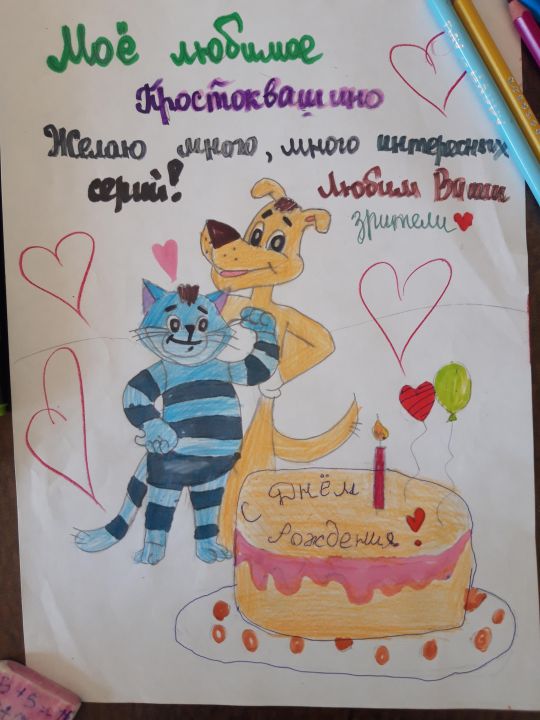 Моё любимое
Простоквашино
Желаю много, много интересных
серий! Любим Ваши
зрители
С Днём
Рождения!